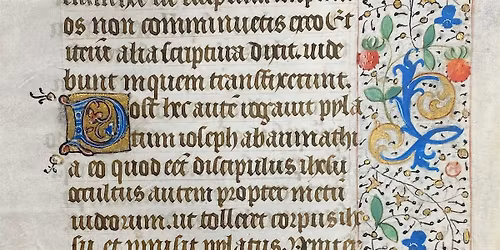 os non comminuetis ex eo Et
iterū alia scriptura dixit. uide
bunt in quem transfixerunt.
Post hec autē rogauit pyla
tum ioseph ab arimathi
a eo quod eēt discipulus ihesu
occultus autem propter metū
iudeorum. ut tolleret corpus ihe
su. et pmisit pylatus. Venit er